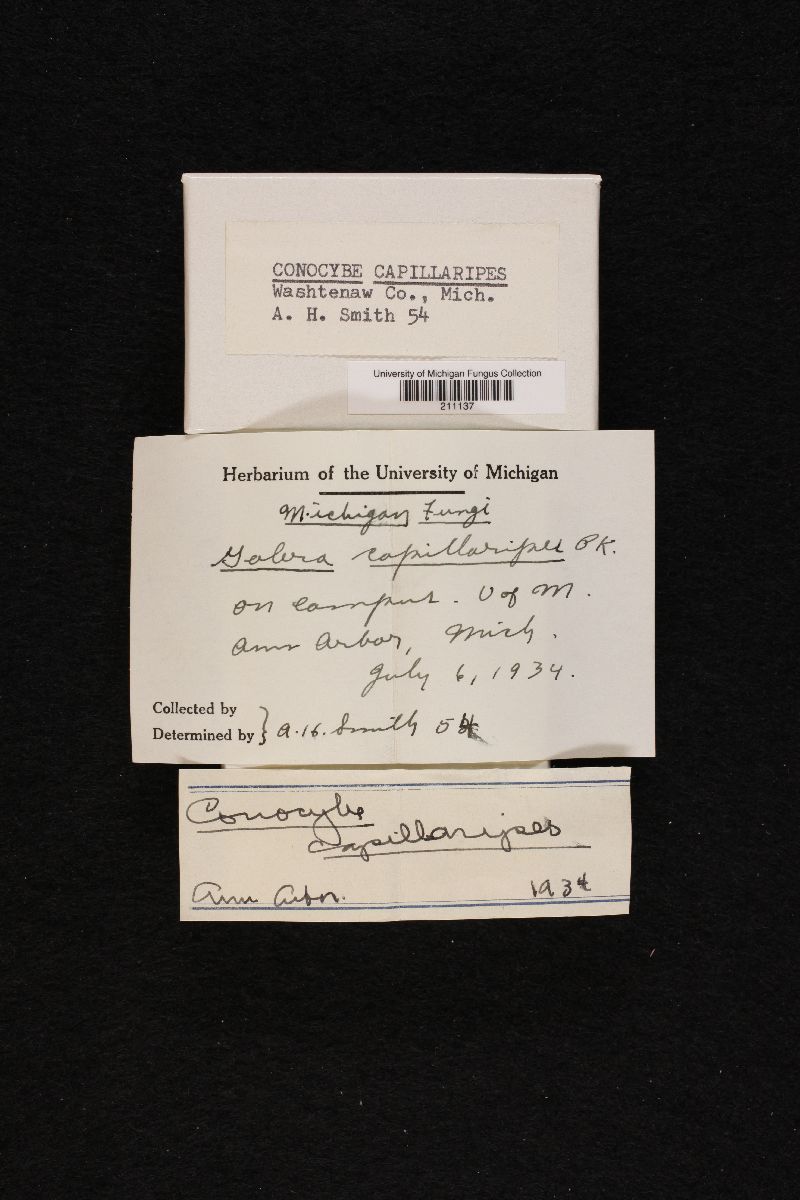 CONOCYBE CAPILLARIPES
Washtenaw Co., Mich.
A. H. Smith 54
University of Michigan Fungus Collection
211137
Herbarium of the University of Michigan
Michigan Fungi
Galera capillaripes PK.
on campus. U of M.
Ann Arbor, Mich.
July 6, 1934.
Collected by
Determined by } A.H. Smith 54
Conocybe
capillaripes
Ann Arbor. 1934